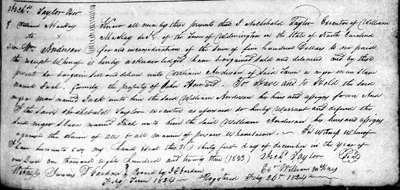 Archd. Taylor Exor
William MacKay
to
Wm. Anderson
Know all men by these presents that I Archibald Taylor Executor of William
MacKay decd. of the Town of Wilmington in the State of North Carolina
for an in consideration of the Sum of five hundred Dollars to me paid
the receipt whereof is hereby acknowledged have bargained sold and delivered and by these
presents do bargain sell and deliver unto William Anderson of Said Town a negro man Slave
named Jack formerly the property of John Howard. To have and to Hold the said
negro man named Jack unto him the said William Anderson his heirs and assigns forever And
I the Said Archibald Taylor Executor as aforesaid do hereby Warrant and defend the
said negro Slave named Jack unto him the said William Anderson his heirs and assigns
against the claim of all & all manner of persons whomsoever. In witness whereof
I have hereunto set my hand & seal the 31 thirty first day of december in the year of
our Lord one thousand eight hundred and twenty three (1823) Archd. Taylor
William McKay
Feby Term 1824 Registered Feby 26th 1824